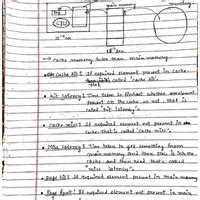 Reg
CPU
main memory
memory
→ cache memory faster than main memory.
• cache hit: If required element present in cache
called "cache hit".
• hit latency: Time taken to findout whether our element
present on the cache or not, that is
called "hit latency".
• cache miss: If required element not present in the
cache. that is called "cache miss".
• Miss latency: Time taken to get something from
main memory and then store it into the
cache and then read that's called
miss latency.
• Page hit: If required element present in main
• Page fault: If required element not present in main